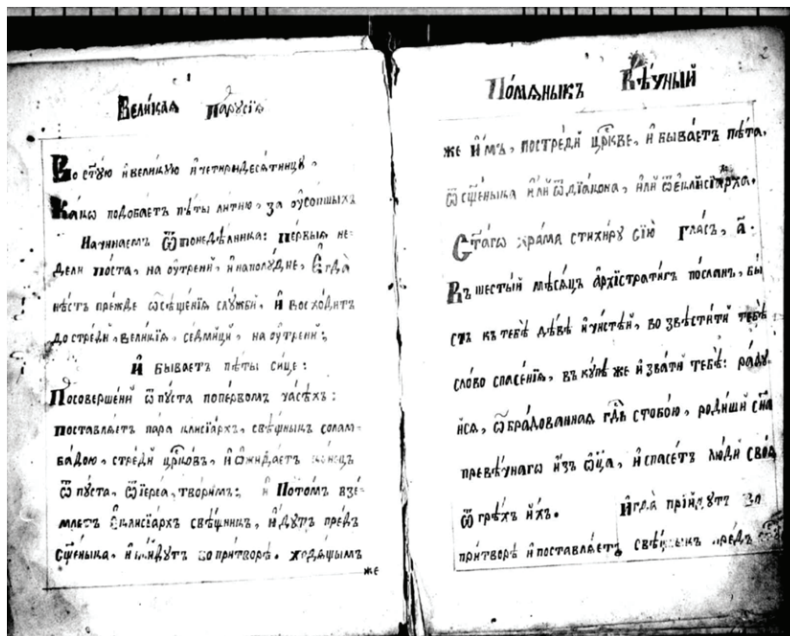 Вели́каѧ парꙋсїѧ
Во ст҃ꙋ́ю и҆ вели́кꙋю и҆ четиридесѧ́тницꙋ,
Ка́кѡ подоба́етъ пѣ́ты литию̀, за ѹ҆со́пшыхъ
Начина́емъ ѿ понедѣ́лника: пе́рвыѧ не-
дели по́ста, на ѹ҆́трени, и҆ наполꙋ́дне, Е҆гда̀
нѣ́стъ пре́жде ѡ҆сщ҃е́нїѧ слꙋ́жби, И҆ восхо́дитъ
до стре́ди, вели́кїѧ, се́дмици, на ѹ҆́трени:
И҆ быва́етъ пѣ́ты си́це:
Посоверше́нїи ѿпꙋста поперво́мъ часѣ́хъ:
поставлѧ́етъ пара клисїа́рхъ, свѣ́щникъ солам-
ба́дою, стре́дѣ цр҃ко́въ, и҆ ѡ҆жида́етъ коне́цъ
ѿпꙋста, ѿ їере́а, твори́мъ: И҆ Пото́мъ взе́-
млетъ Е҆клисїа́рхъ свѣ́щникъ, и҆́дꙋтъ пре́дъ
сщ҃е́ныка, и҆ и҆́дꙋтъ во при́творъ. ходѧ́щымъ
же
По́мѧныкъ Вѣ́чный
же и҆́мъ, постредѣ̀ цр҃кве, и҆ быва́етъ пѣ́та,
ѿ сщ҃е́ныка и҆лѝ ѿ дїа́кона, и҆лѝ ѿ е҆клисїа́рха.
Ст҃а́гѡ хра́ма стихи́рꙋ сїю̀ гла́съ, а҃:
Въ шесты́й мѣ́сѧцъ а҆рхїстрати́гъ по́сланъ, бы́-
стъ къ тебѣ̀ дѣ́ве и҆ чи́стѣй, возвѣсти́ти тебѣ̀
сло́во спасе́нїѧ, въ кꙋ́пѣ же и҆ зва́ти тебѣ̀: ра́дꙋ-
йсѧ, ѡ҆бра́дованнаѧ гд҃ь стобо́ю, роди́ши сн҃а
превѣ́чнагѡ и҆зъ ѻ҆ц҃а, и҆ спасе́тъ лю́ди своѧ̀
ѿ грѣ́хъ и҆́хъ. И҆гда̀ прїи́дꙋтъ во
при́творъ и҆ поставлѧ́етъ свѣ́щныкъ пре́дъ